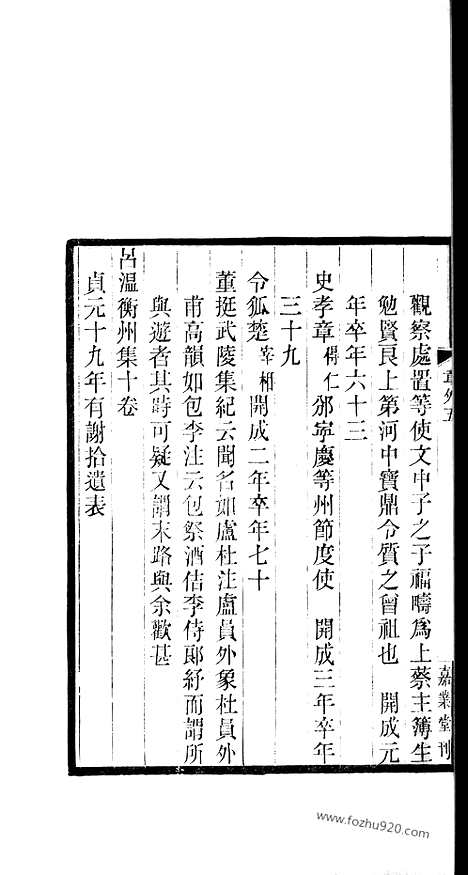 觀察處置等使文中子之子福疇爲上蔡主簿生
勉賢良上第河中寶鼎令質之曾祖也　開成元
年卒年六十三
史孝章得仁邠寧慶等州節度使　開成三年卒年
三十九
令狐楚宰相開成二年卒年七十
董挺武陵集紀云聞名如盧杜注盧員外象杜員外
甫高韻如包李注云包祭酒佶李侍郎紓而謂所
與遊者其時可疑又謂末路與余歡甚
呂溫衡州集十卷
貞元十九年有謝拾遺表
嘉業堂刊
www.fozhu920.com